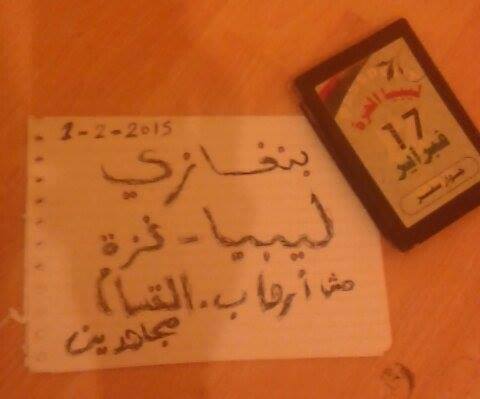 1-2-2015
بنغازي
ليبيا - غزة
مش أرهاب . القسام
مجاهدين
ليبيا الحرة
17
فبراير